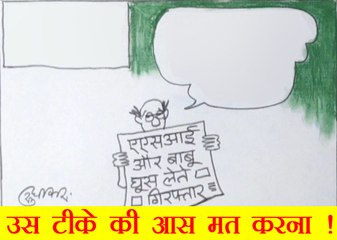 एएसआई
और बाबू
घूस लेते
गिरफ्तार
उस टीके की आस मत करना !